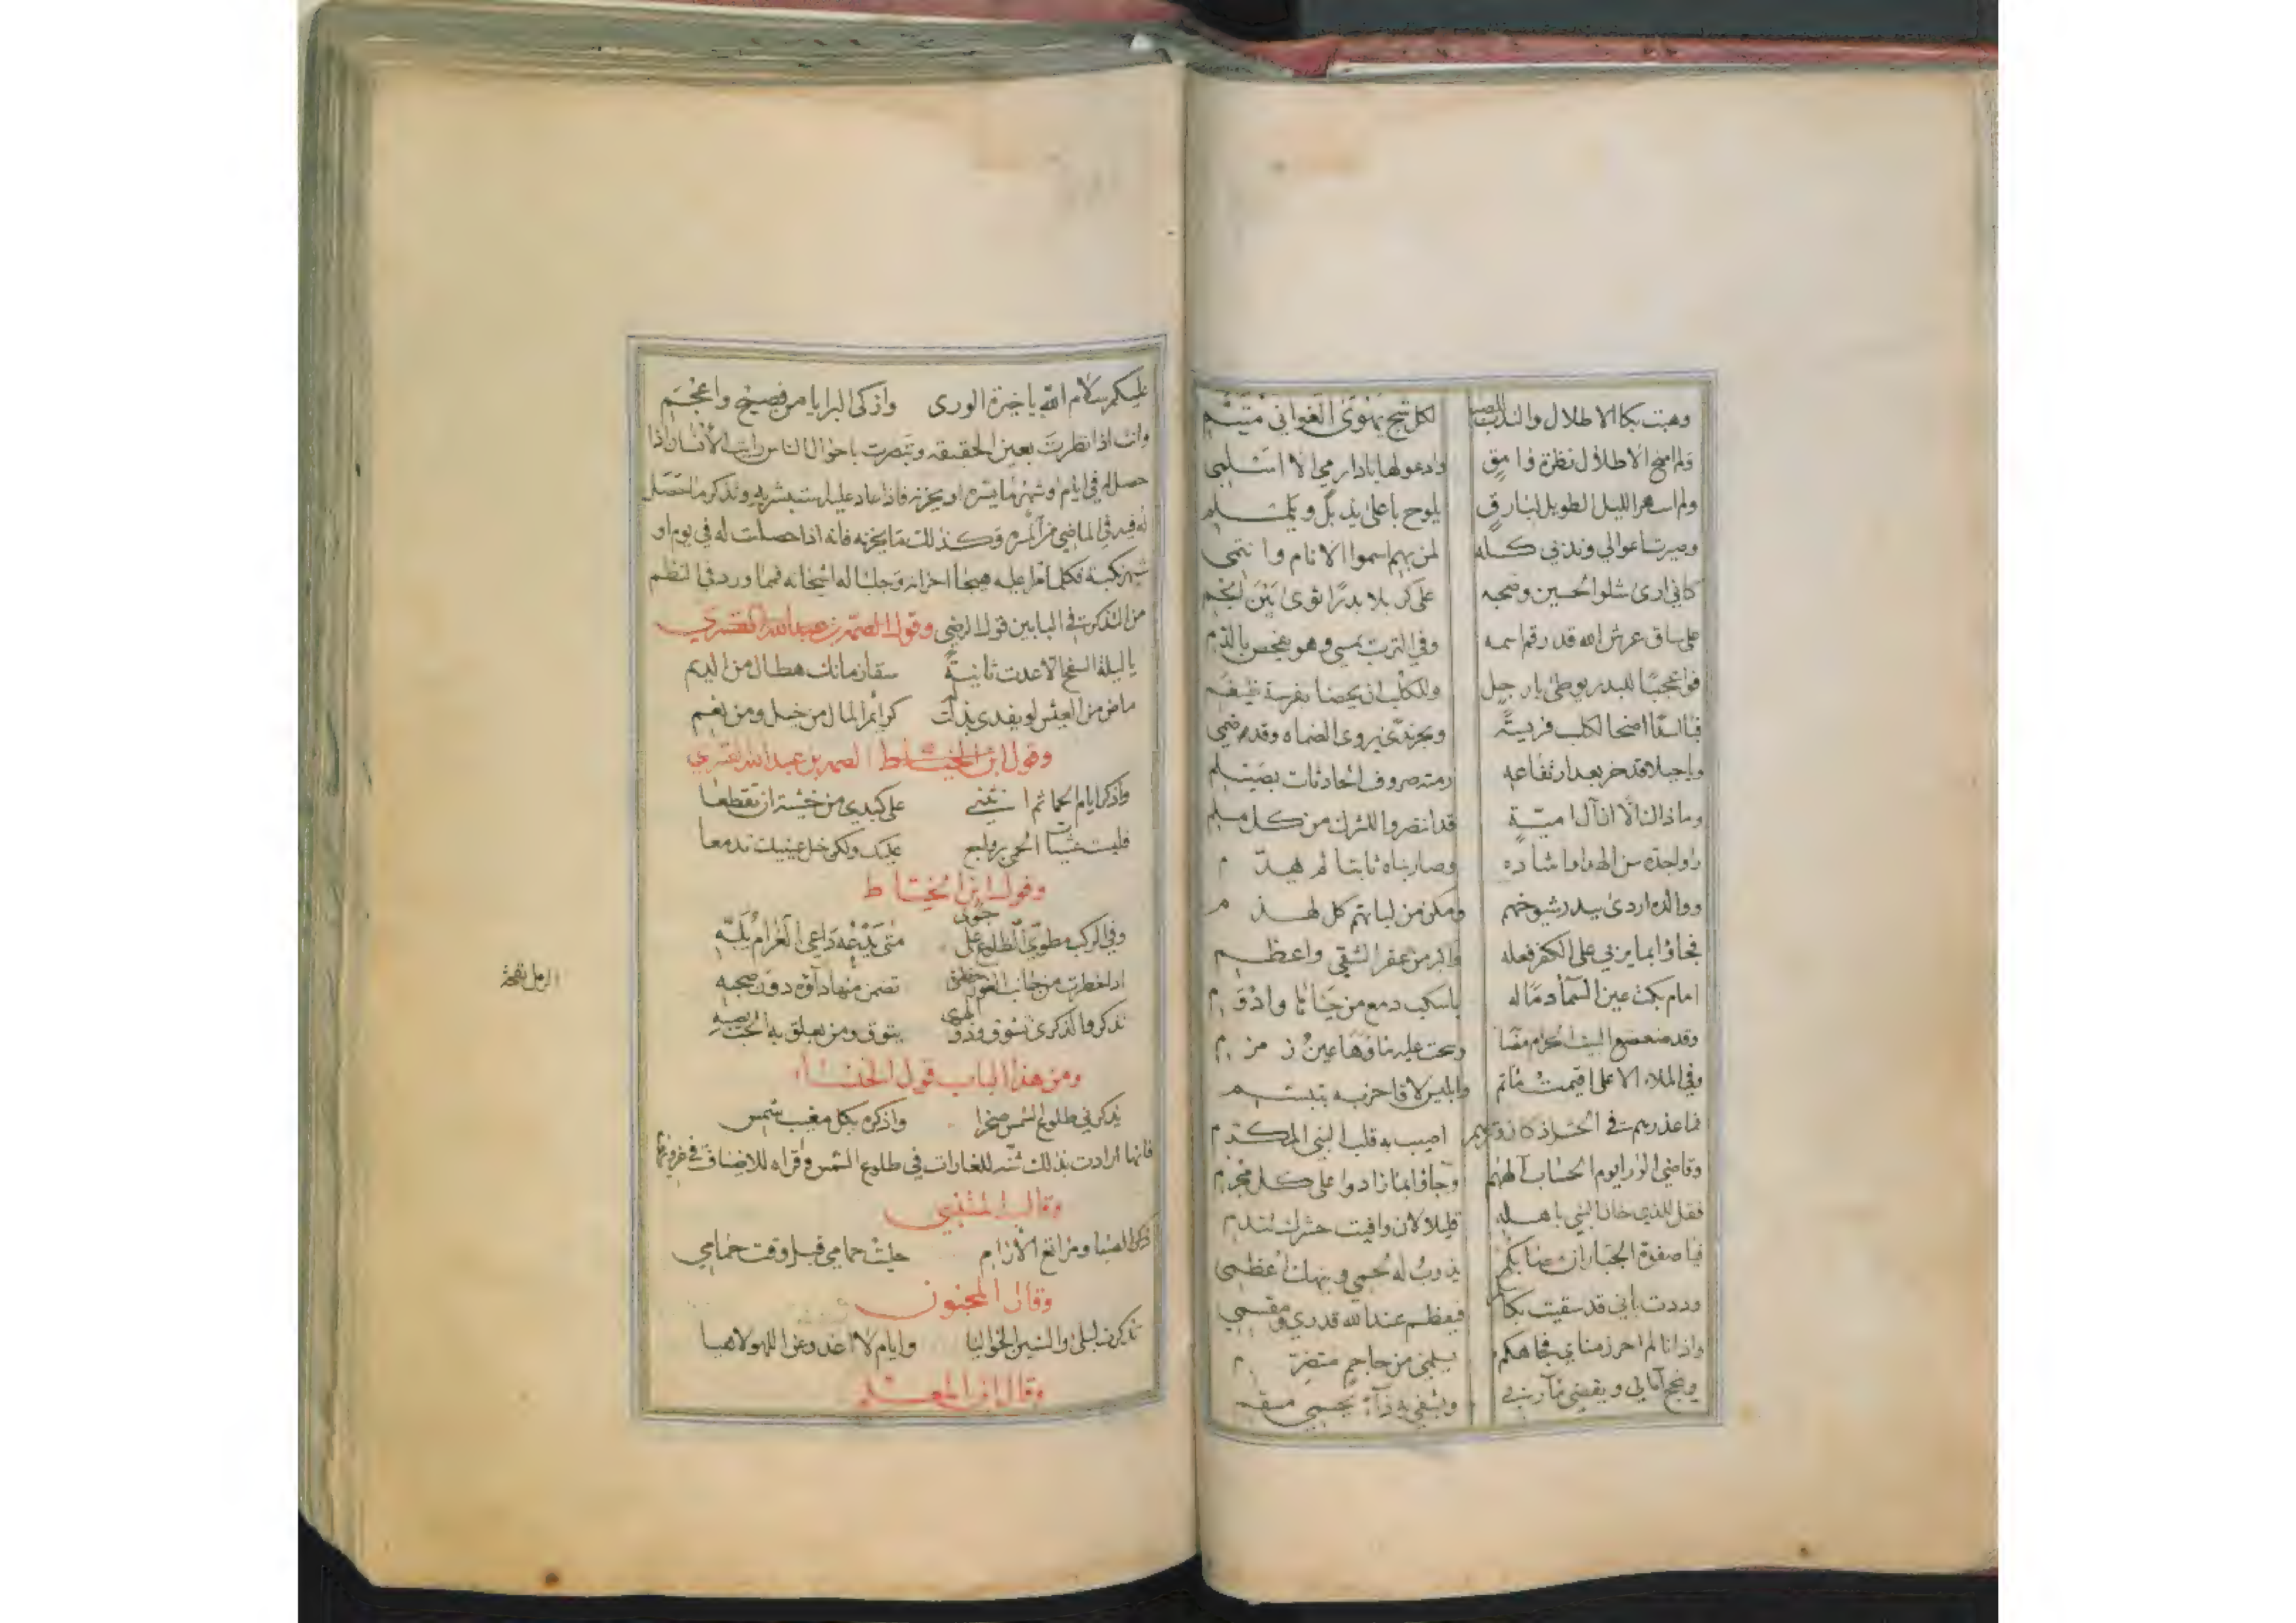 وهبت بكا الاطلال والندب لكل شج يهوى الغواني متيم
ولم امنح الاطلال نظرة وامق وادعو لها يا دار مي الا اسلمي
ولم اسهر الليل الطويل لبارق يلوح باعلى يذبل ويلملم
وصيرت اعوالي وندبي كله لمن بهم اسموا الانام وانتمى
كاني ارى شلو الحسين وصحبه على كربلا بدرا ثوى بين انجم
على ساق عرش الله قد رقم اسمه وفي الترب يمسي وهو يفحص بالدم
فوا عجبا للبدر يوطى بارجل وللكلب ان يحضا بفرسة ضيغم
فيا اسفا اضحا الكلب فريسة
ويا جبلا قد خر بعد ارتفاعه رمته صروف الحادثات بصيلم
وما ذا لنا الا ان آل امية قد انتضروا للشرك من كل مسلم
وصار بناه ثابتا لم يهدم
ووالده اردى ببدر شيوخهم ومكن من لباتهم كل لهذم
فجاؤا بما يربي على الكفر فعله واكبر من عقر الشقي واعظم
امام بكت عين السما دما له باسكب دمع من حيانا وادوم
وقد ضعضع البيت الحرام مصا وبحت عليه ماؤها عين زمزم
وفي الملاء الاعلى اقيمت مآتم وابليس لاقا حزبه بتبسم
فما عذرهم في الحشر اذ كان وترهم اصيب به قلب النبي المكرم
وقاضي الورا يوم الحساب آلههم وجاؤا بما زادوا على كل مجرم
فقل للذي خان النبي باهله قليلا لان وافيت حشرك تندم
فيا صفوة الجبار ان مصابكم يذوب له لحمي وينهك اعظمي
وددت باني قد سقيت بكاسكم فيعظم عند الله قدري ومقسمي
واذ انا لم احرز مناي فجاهكم يسلمني من جاحم متضرم
وينجح آمالي ويقضي مآربي ويشفي به داء بجسمي مسقم
عليكم سلام الله يا خيرة الورى وازكى البرايا من فصيح واعجم
وانت اذا نظرت بعين الحقيقه وتبصرت باحوال الناس رايت الانسان اذا
حصل له في ايام او شهر ما يسره او يحزنه فاذا عاد عليه استبشر به وتذكر ما حصل
له فيه في الماضي من المسره وكذلك ما يحزنه فانه اذا حصلت له في يوم او
شهر نكبة فكلما مر عليه هيجا احزانه وجلب له اشجانه فمما ورد في النظم
من التذكرة في البابين قول الرضي وقول الصمه بن عبدالله القشري
يا ليلة السفح الا عدت ثانية سقا زمانك هطال من الديم
ماض من العيش لو يفدى بذلت كرائم المال من خيل ومن نعم
وقول ابن الخياط الصمه بن عبد الله القشري
واذكر ايام الحما ثم انثني على كبدي من خشية ان تقطعا
فليست عشيات الحمى برواجع عليك ولكن خل عينيك تدمعا
وقول ابن الخياط
وفي الركب مطوي الضلوع على جوى متى يدعه داعي الغرام يلبه
اذا خطرت من جانب الغور خطرة تضمن منها دآؤه دون صحبه
تذكر والذكرى تشوق وذو الهوى يتوق ومن يعلق به الحب يصبه
ومن هذا الباب قول الخنسا
يذكرني طلوع الشمس صخرا واذكره بكل مغيب شمس
فانها ارادت بذلك شنه للغارات في طلوع الشمس وقراه للاضياف في غروبها
وقال المتنبي
ذكر الصبا ومراتع الارام جلبت حمامي قبل وقت حمامي
وقال المجنون
تذكرت ليلى والسنين الخواليا وايام لا اعدو عن اللهو لاهيا